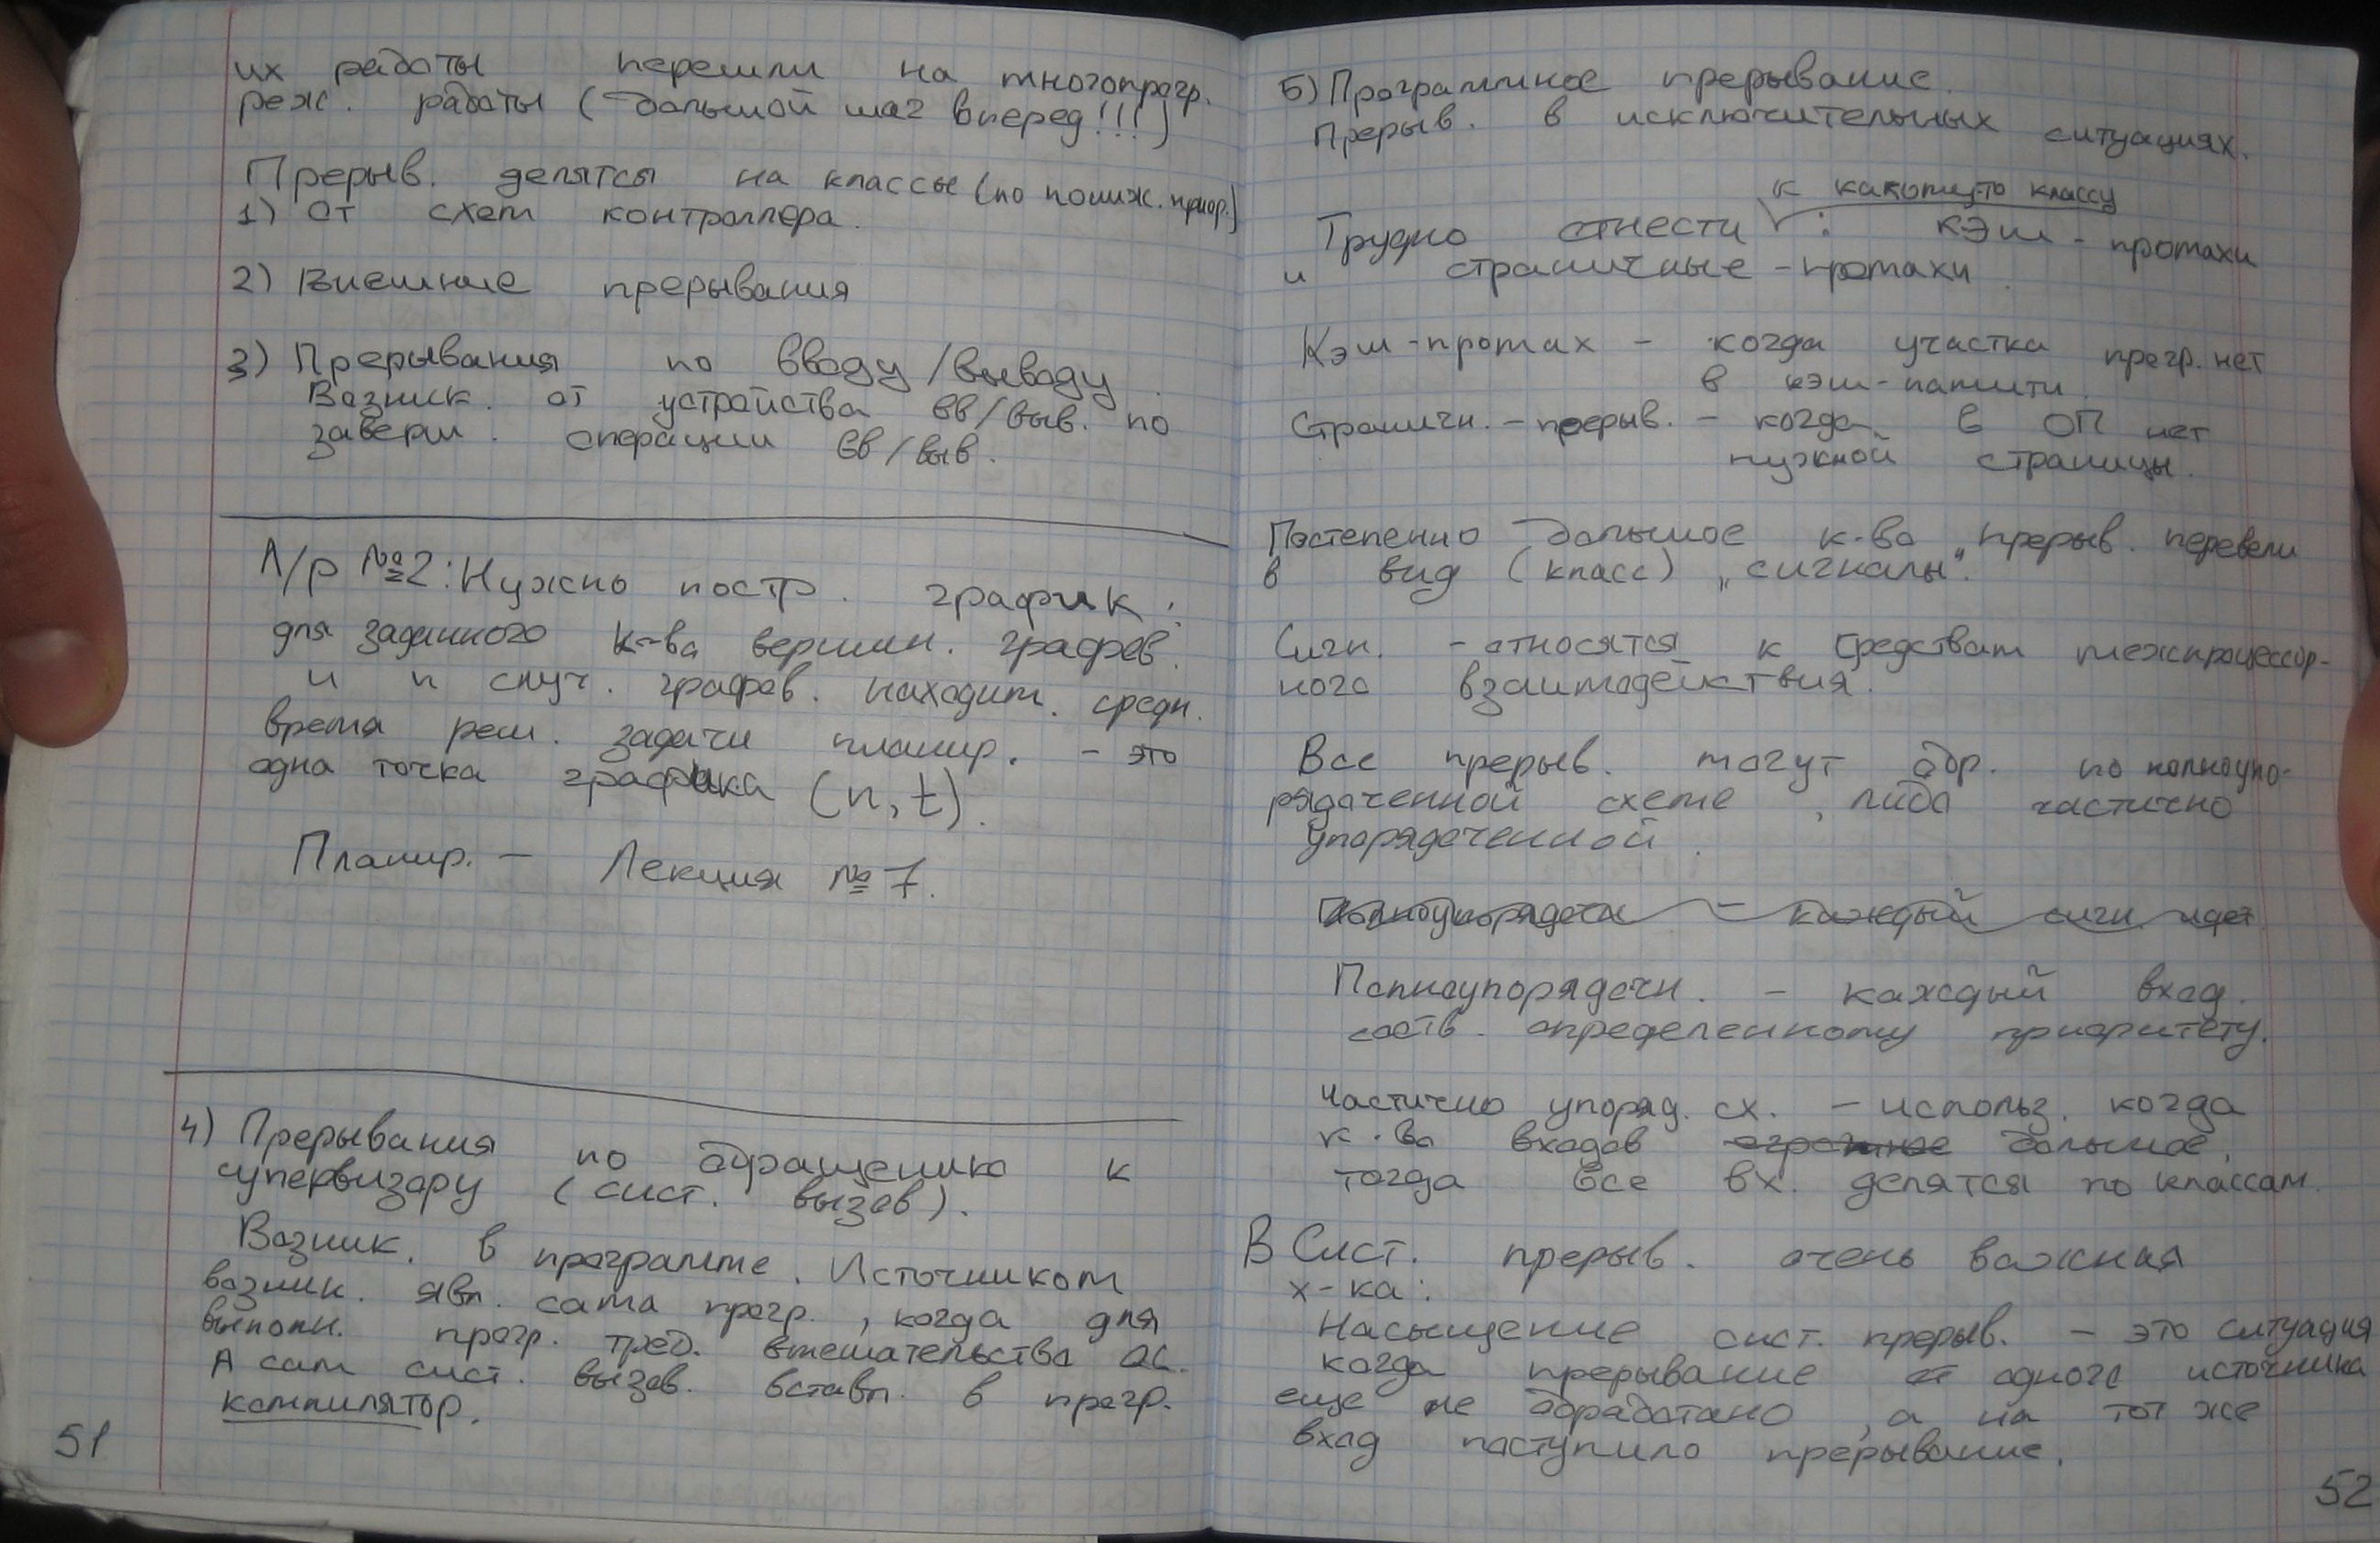 их работы перешли на многопрогр.
реж. работы (большой шаг вперед!!!)
Прерыв. делятся на классы (по пониж. приор.)
1) От схем контроллера.
2) Внешние прерывания
3) Прерывания по вводу/выводу.
Возник. от устройства вв/выв. по
заверш. операции вв/выв.
Л/р №2: Нужно постр. график:
для заданного к-ва вершин. графов.
и n случ. графов. находим. средн.
время реш. задачи планир. - это
одна точка графика (n, t).
Планир. - Лекция №7.
4) Прерывания по обращению к
супервизору (сист. вызов).
Возник. в программе. Источником
возник. явл. сама прогр., когда для
выполн. прогр. треб. вмешательство ОС.
А сам сист. вызов. вставл. в прогр.
компилятор.
51
5) Программное прерывание.
Прерыв. в исключительных ситуациях.
к какому-то классу
Трудно отнести : кэш-промахи
и страничные-промахи.
Кэш-промах - когда участка прогр. нет
в кэш-памяти.
Страничн.-прерыв. - когда в ОП нет
нужной страницы.
Постепенно большое к-во прерыв. перевели
в вид (класс) „сигналы".
Сигн. - относятся к средствам межпроцессор-
ного взаимодействия.
Все прерыв. могут обр. по полноупо-
рядоченной схеме, либо частично
упорядоченной.
Полноупорядочн - каждый сигн. идет
Полноупорядочн. - каждый вход.
соотв. определенному приоритету.
Частично упоряд. сх. - использ. когда
к-во входов огромное большое,
тогда все вх. делятся по классам.
В Сист. прерыв. очень важная
х-ка:
Насыщение сист. прерыв. - это ситуация
когда прерывание от одного источника
еще не обработано, а на тот же
вход поступило прерывание.
52